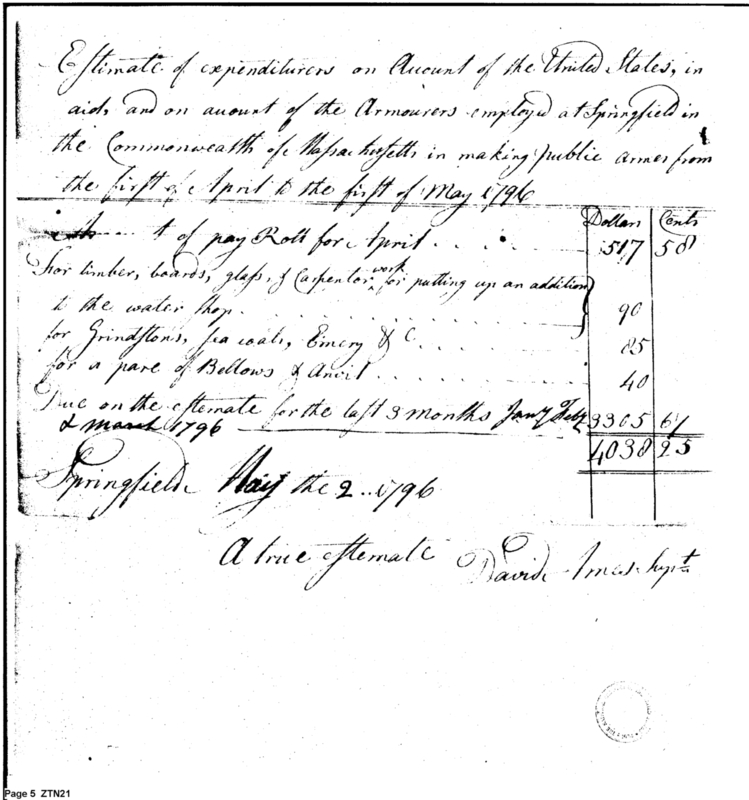 Estimate of expenditurers on Account of the United States, in
aid, and on account of the Armourers employed at Springfield in
the Commonwealth of Massachusetts in making public armes from
the first of April to the first of May 1796
Dollars Cents
t of pay Roll for April . . . . 517 58
For timber, boards, glass, & Carpentors work for putting up an addition
to the water shop . . . . . . . . . . 90
for Grindstons, sea coals, Emery & C . . . . . 85
for a pare of Bellows & Anvil . . . . . . . 40
Due on the estemate for the last 3 months Jany Feby 3305 67
& march 1796
4038 25
Springfield May the 2 .. 1796
A true estemate David Ames Supt
Page 5 ZTN21